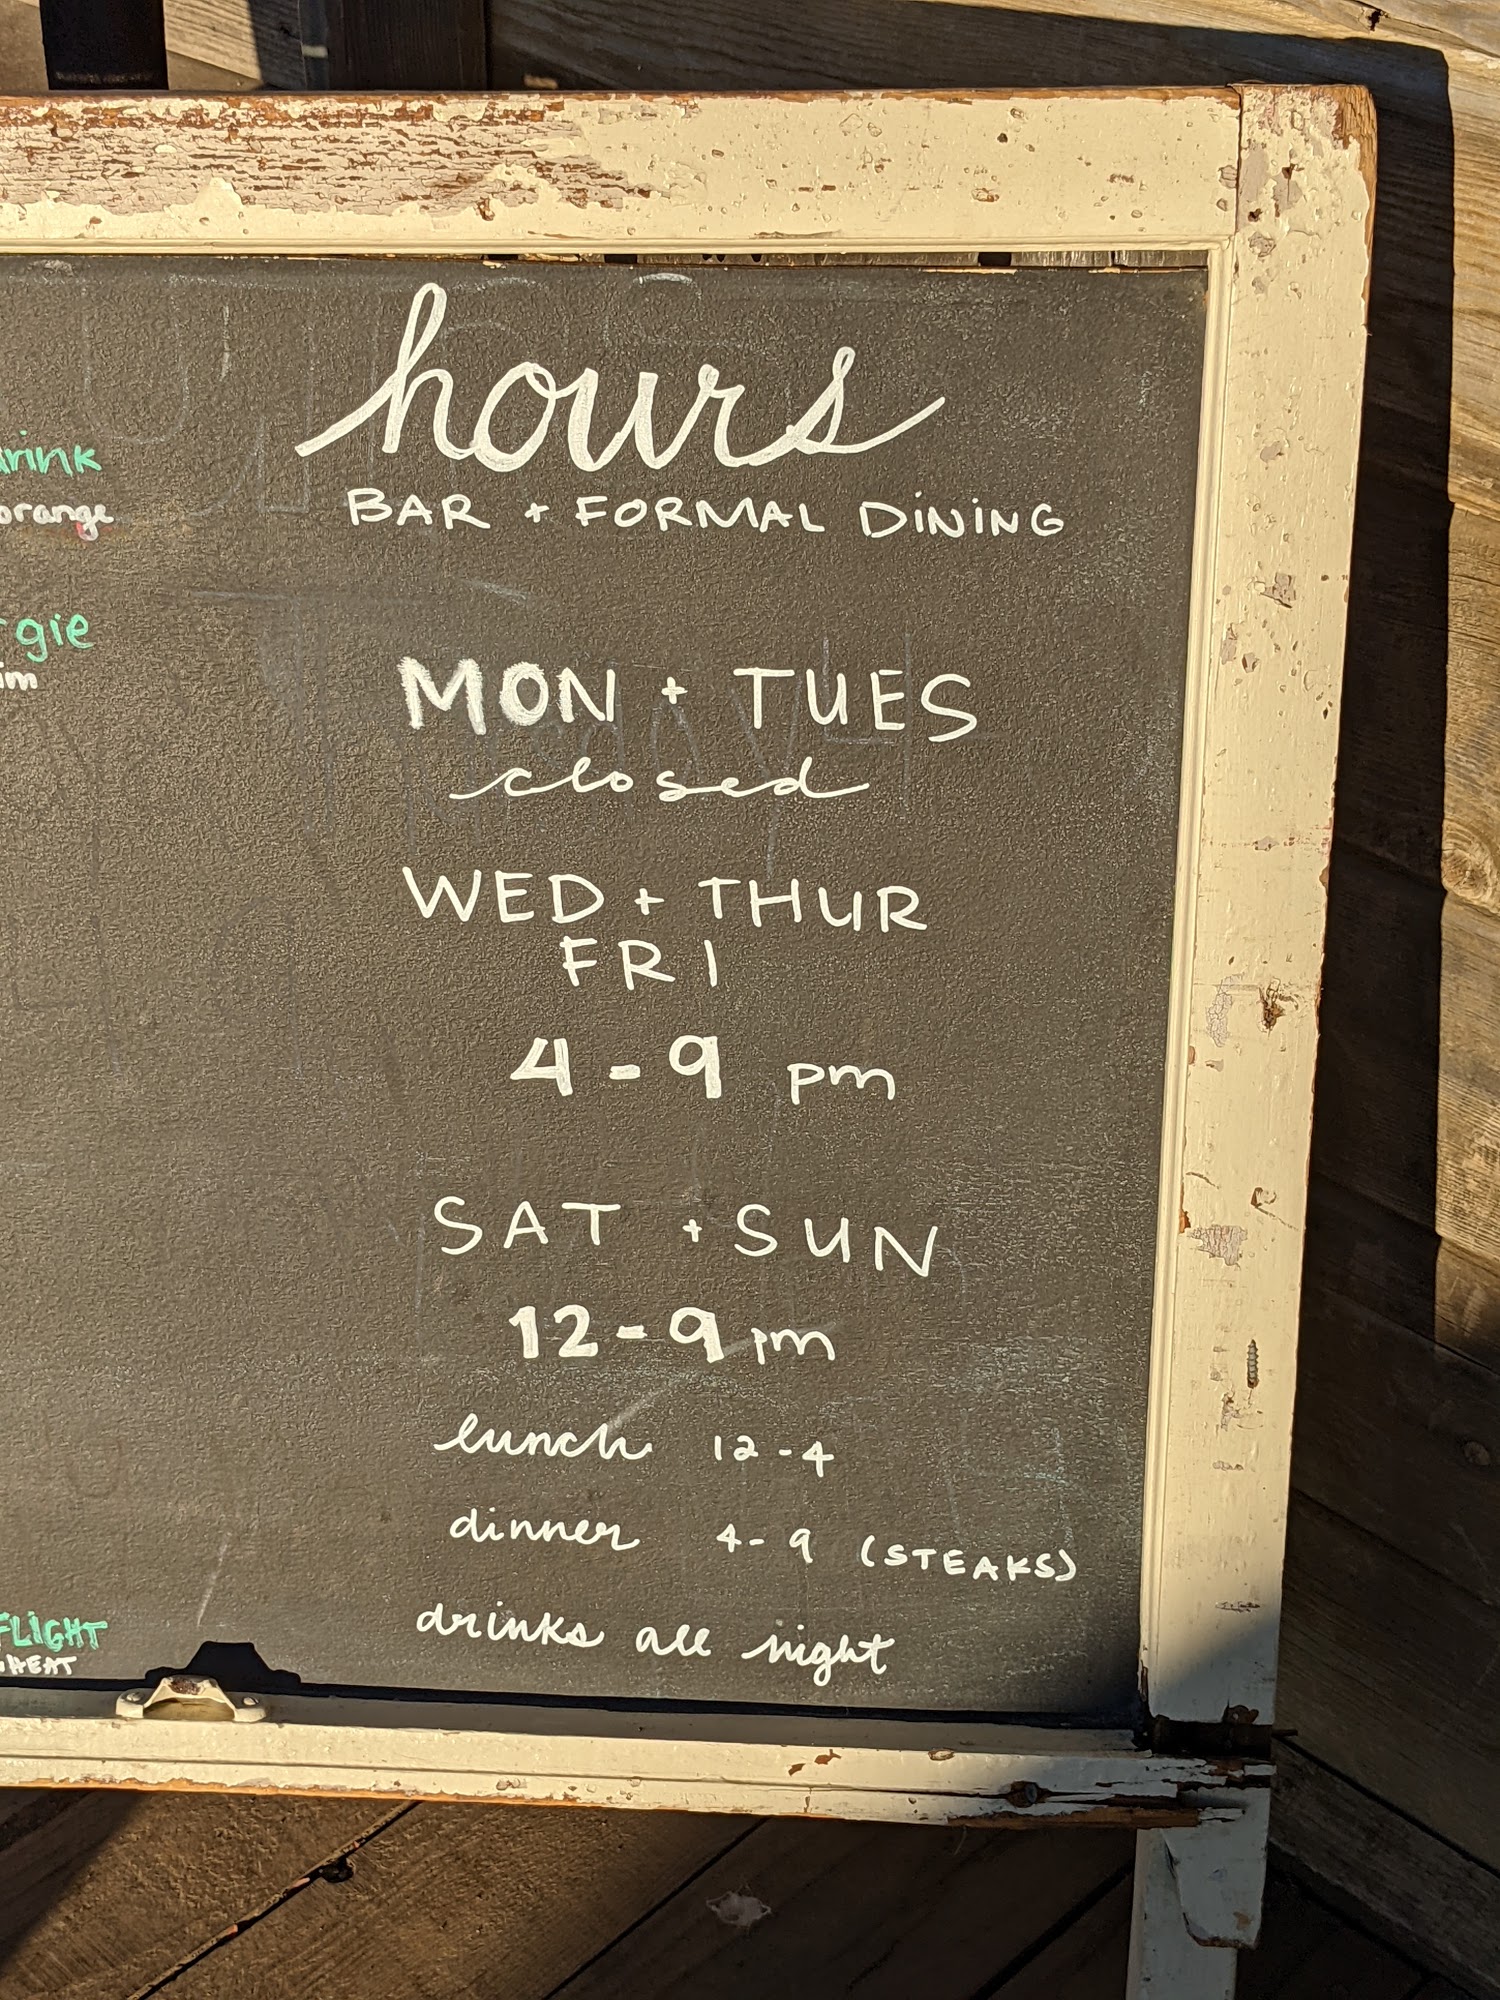 hours
BAR + FORMAL DINING
MON + TUES
closed
WED + THUR
FRI
4-9 pm
SAT + SUN
12-9 pm
lunch 12-4
dinner 4-9 (STEAKS)
drinks all night
orange
FLIGHT